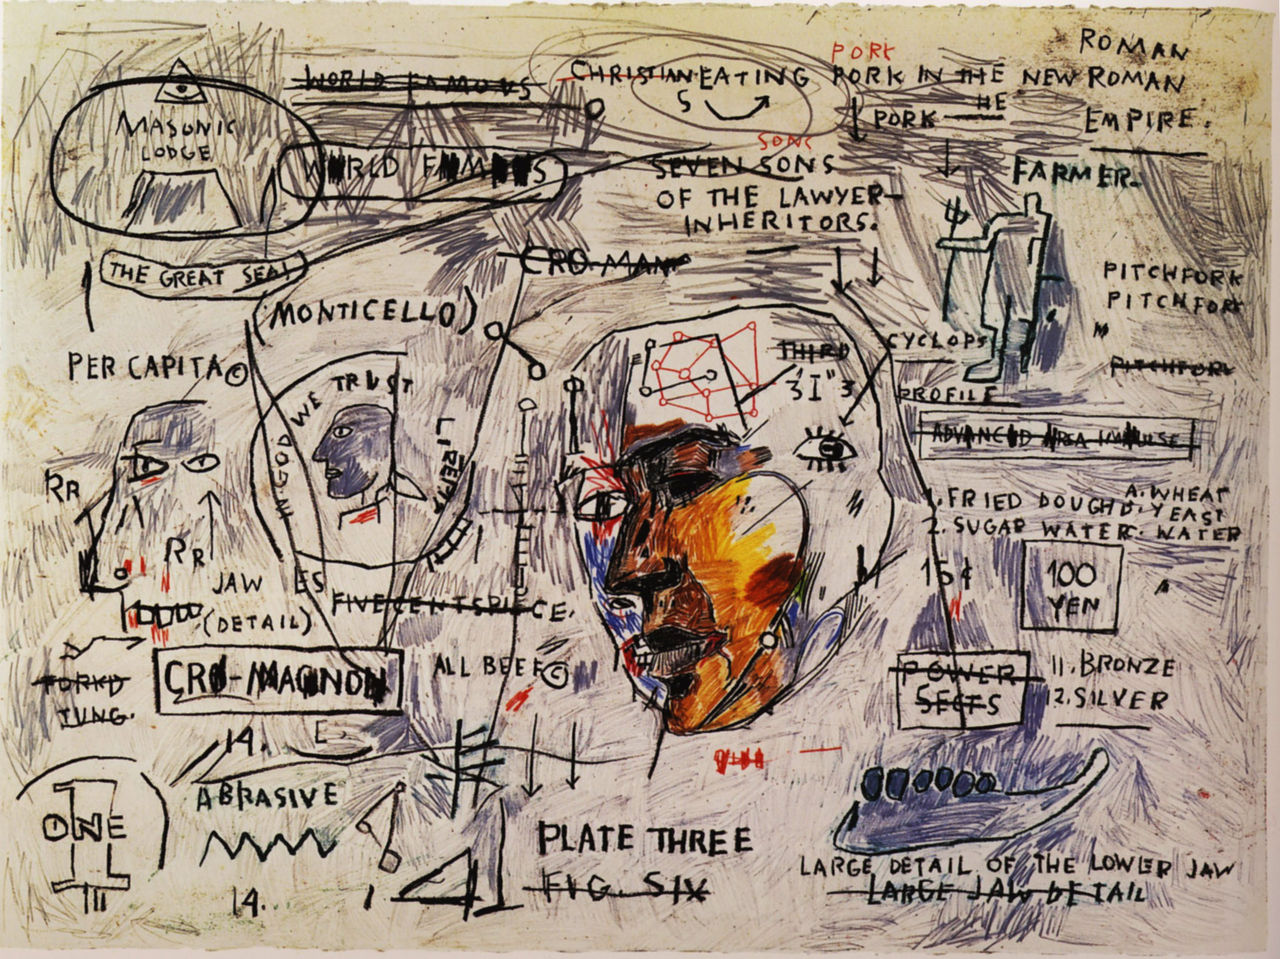 ROMAN
PORK
CHRISTIAN EATING
S
PORK IN THE NEW ROMAN
HE
PORK
EMPIRE.
WORLD FAMOUS
MASONIC
LODGE
WORLD FAMOUS
SONS
SEVEN SONS
OF THE LAWYER—
INHERITORS.
FARMER.
THE GREAT SEAL
CRO-MAN
PITCHFORK
PITCHFORK
"
PITCHFORK
(MONTICELLO)
CYCLOPS
THIRD
3"I"3
PER CAPITA ©
IN GOD WE TRUST
LIBERT
PROFILE
ADVANCED AREA IMPULSE
1. FRIED DOUGH
2. SUGAR WATER
A. WHEAT
B. YEAST
C. WATER
RR
RR
JAW
(DETAIL)
ES
FIVE CENTS PIECE.
15¢
100
YEN
CRO-MAGNON
ALL BEEF ©
POWER
SECTS
11. BRONZE
12. SILVER
TUNG.
14.
E
ONE
ABRASIVE
14.
PLATE THREE
FIG. SIX
LARGE DETAIL OF THE LOWER JAW
LARGE JAW DETAIL